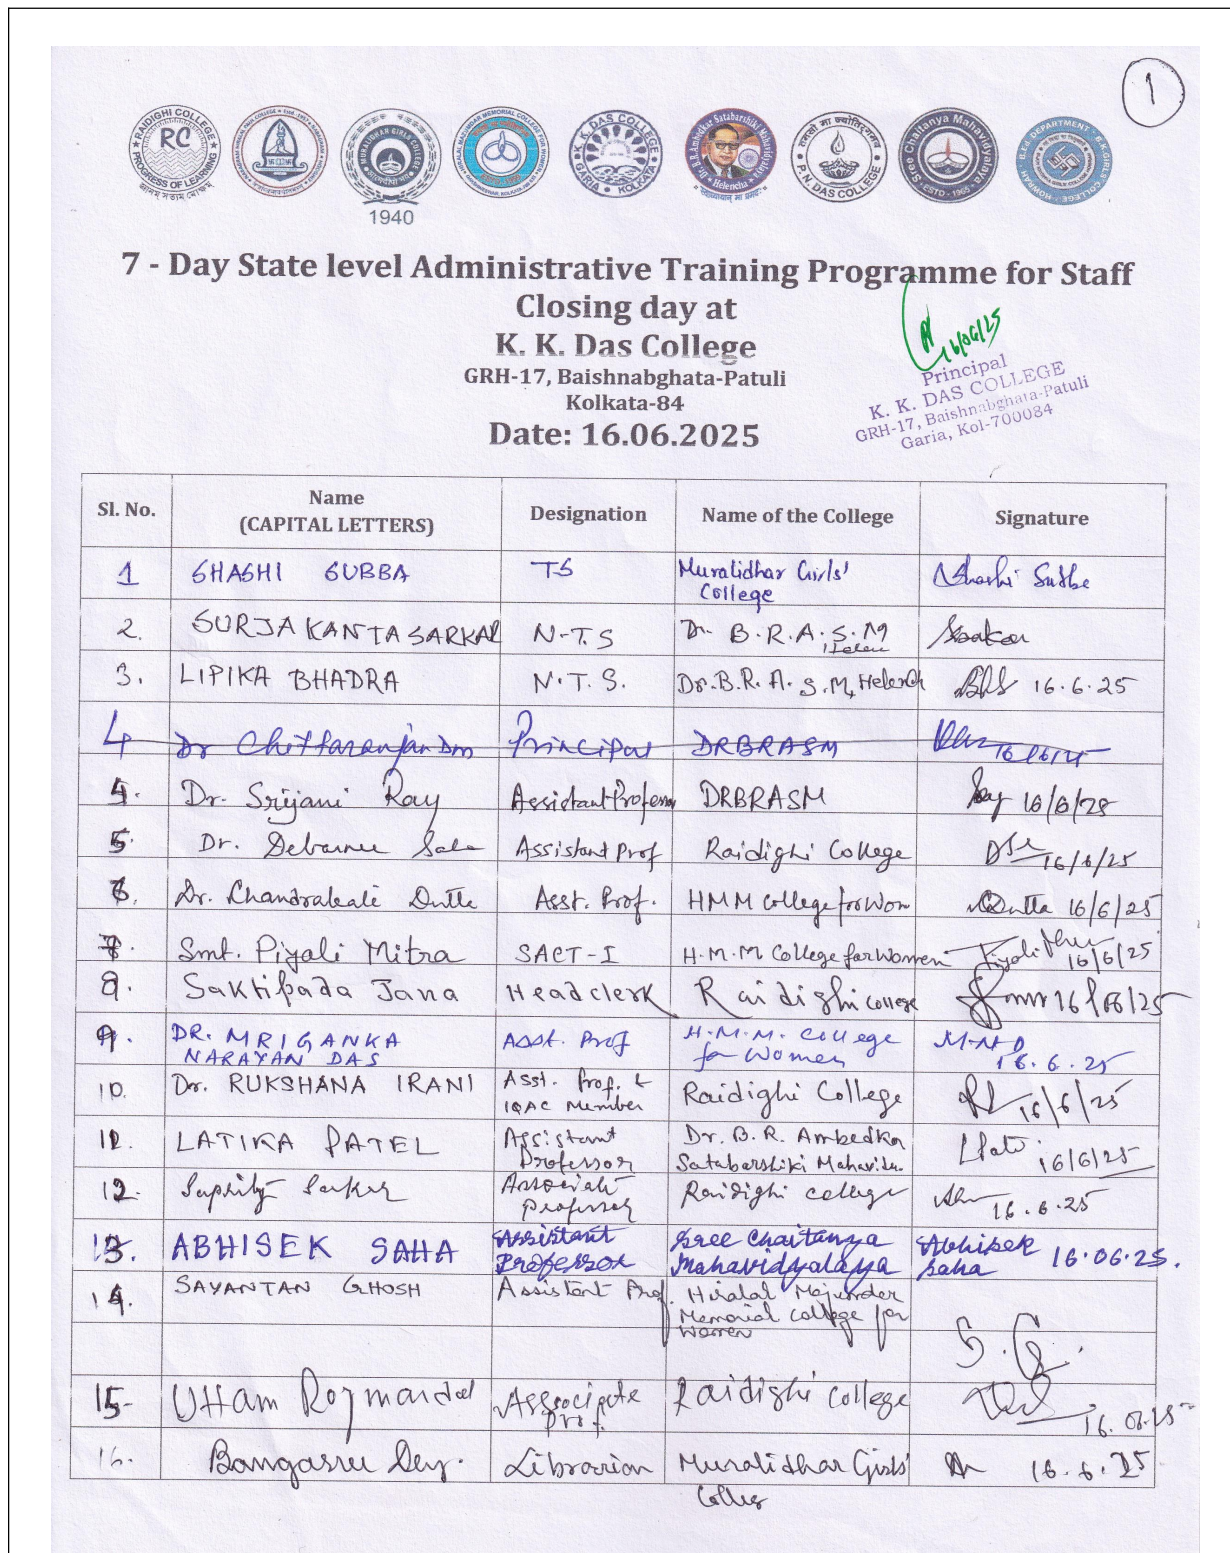 1
RAIDIGHI COLLEGE
RC
PROGRESS OF LEARNING
MURALIDHAR GIRLS' COLLEGE
1940
K. K. DAS COLLEGE
GARIA ★ KOLKATA
Dr. B.R.Ambedkar Satabarshiki Mahavidyalaya
Helencha
P. N. DAS COLLEGE
Sree Chaitanya Mahavidyalaya
ESTD - 1965
7 - Day State level Administrative Training Programme for Staff
Closing day at
K. K. Das College
GRH-17, Baishnabghata-Patuli
Kolkata-84
Date: 16.06.2025
16/06/25
Principal
K. K. DAS COLLEGE
GRH-17, Baishnabghata-Patuli
Garia, Kol-700084
Sl. No. Name (CAPITAL LETTERS) Designation Name of the College Signature
1 SHASHI SUBBA TS Muralidhar Girls' College Shashi Subba
2. SURJA KANTA SARKAR N-T.S Dr. B.R.A.S.M Sarkar
3. LIPIKA BHADRA N.T.S. Dr.B.R.A.S.M, 16.6.25
4 Dr Chittaranjan Das Principal DRBRASM
4. Dr. Srijani Ray Assistant Professor DRBRASM Ray 16/6/25
5 Dr. Saha Assistant Prof Raidighi College 16/6/25
6. Dr. Chandrakali Dutta Asst. Prof. HMM College for Wom Dutta 16/6/25
7. Smt. Piyali Mitra SACT-I H.M.M College for Women Piyali 16/6/25
8. Saktipada Jana Head clerk Raidighi college 16/06/25
9. DR. MRIGANKA NARAYAN DAS Asst. Prof H.M.M. College for Women M.N.D 16.6.25
10. Dr. RUKSHANA IRANI Asst. Prof. & IQAC Member Raidighi College 16/6/25
11. LATIKA PATEL Assistant Professor Dr. B.R. Ambedkar Satabarshiki Mahavidu. 16/6/25
12. Sarkar Associate Professor Raidighi college 16.6.25
13. ABHISEK SAHA Assistant Professor Sree Chaitanya Mahavidyalaya Abhisek Saha 16.06.25.
14. SAYANTAN GHOSH Assistant Prof. Hiralal Majumder Memorial College for Women S.G.
15- Uttam Roymandal Associate Prof. Raidighi College 16.06.25
16. Bangasree Dey. Librarian Muralidhar Girls' College 16.6.25